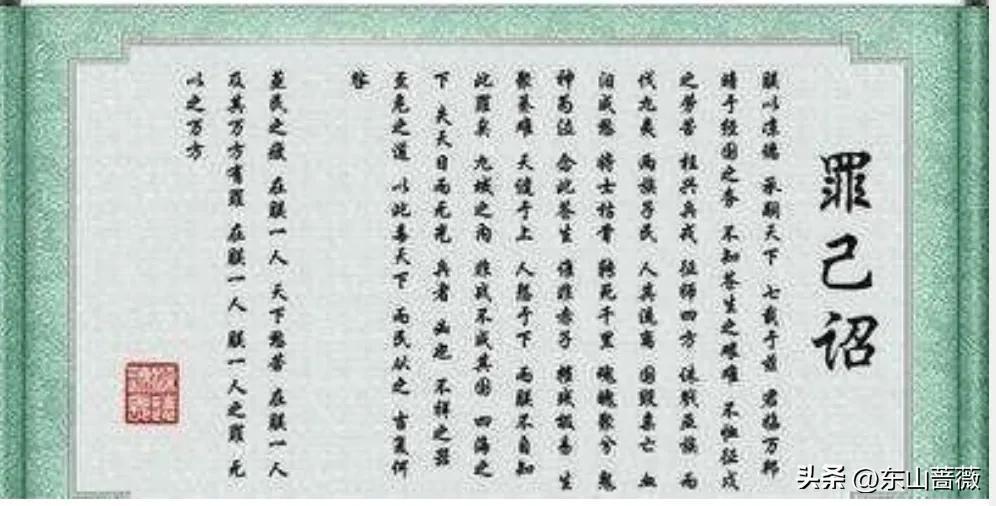 罪己诏
朕以凉德 承嗣天下 七载于兹 君临万邦
于经国之务 不知苍生之艰难 不恤征戍
之劳苦 枉兴兵戎 征师四方 诛戮巫族 而
代九夷 两族子民 人其流离 国毁巢亡 血
泪成愁 将士枯骨 死千里 魂魄聚兮 鬼
神为泣 念此苍生 谁非赤子 残 易 生
聚甚难 天谴于上 人怨于下 而朕不自知
此罪矣 九城之内 非战不成其国 四海之
下 夫天日而无光 兵者 凶也 不祥之器
至危之道 以此毒天下 而民从之 吉复何
咎
民之疲 在朕一人 天下愁苦 在朕一人
及其万方有罪 在朕一人 朕一人之罪 无
以之万方
头条 @东山蔷薇